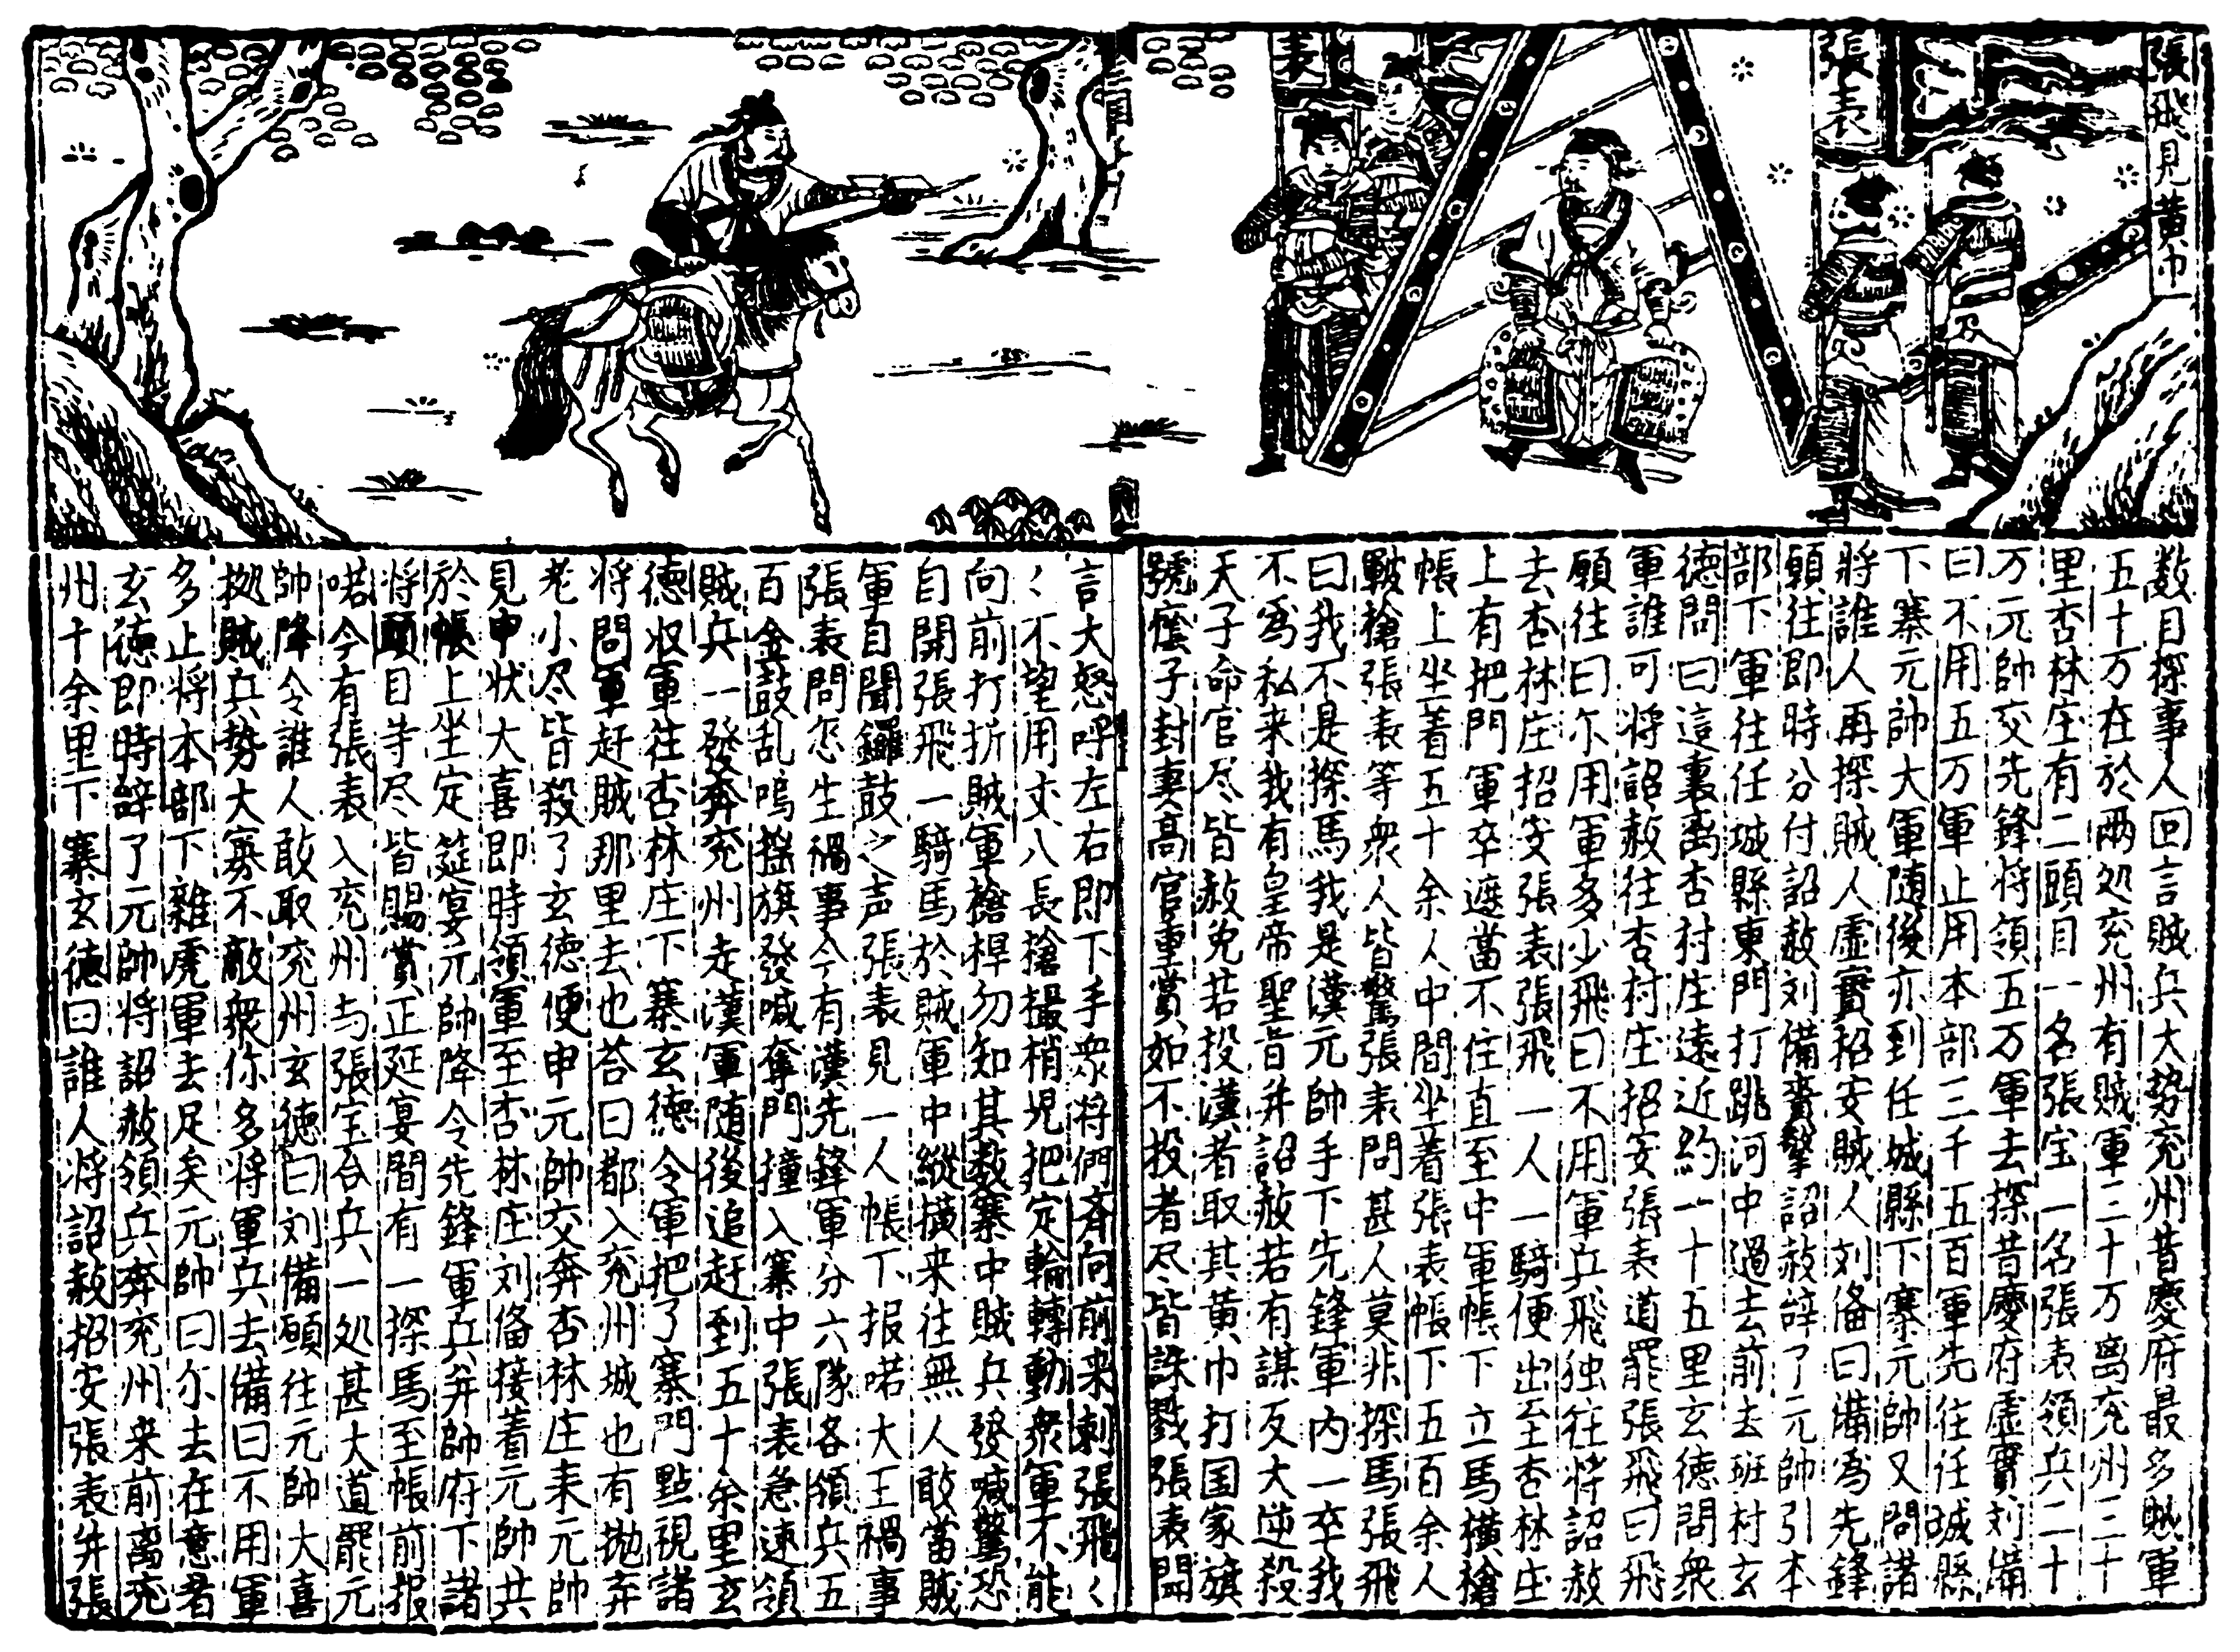 張飛見黃巾
張表
表
三國志上
数目探事人回言賊兵大势兖州昔慶府最多賊軍
五十万在於兩处兖州有賊軍三十万离兖州三十
里杏林庄有二頭目一名張宝一名張表領兵二十
万元帥交先鋒将領五万軍去探昔慶府虚實刘備
曰不用五万軍止用本部三千五百軍先往任城縣
下寨元帥大軍随後亦到任城縣下寨元帥又問諸
將誰人再探賊人虚實招安賊人刘俻曰備為先鋒
願往即時分付詔赦刘備賫擎詔赦辝了元帥引本
部下軍往任城縣東門打跳河中過去前去班村玄
德問曰這裏离杏村庄遠近約一十五里玄德問衆
軍誰可将詔赦往杏村庄招安張表道罷張飛曰飛
願往曰尓用軍多少飛曰不用軍兵飛独往将詔赦
去杏林庄招安張表張飛一人一騎便出至杏林庄
上有把門軍卒遮當不住直至中軍帳下立馬横槍
帳上坐着五十余人中間坐着張表帳下五百余人
皾槍張表等衆人皆驚張表問甚人莫非探馬張飛
曰我不是探馬我是漢元帥手下先鋒軍内一卒我
不為私来我有皇帝聖旨并詔赦若有謀反大逆殺
天子命官尽皆赦免若投漢者取其黄巾打国家旗
號䕃子封妻高官重賞如不投者尽皆誅戮張表聞
言大怒呼左右即下手衆将們斉向前来刺張飛〻
〻不望用丈八長槍撮梢児把定輪轉動衆軍不能
向前打折賊軍槍桿勿知其数寨中賊兵發喊驚恐
自開張飛一騎馬於賊軍中縱横来往無人敢當賊
軍自聞鑼鼓之声張表見一人帳下报喏大王禍事
張表問怎生禍事今有漢先鋒軍分六隊各領兵五
百金鼓乱鳴摇旗發喊奪門撞入寨中張表急速領
賊兵一發奔兖州走漢軍随後追赶到五十余里玄
德収軍往杏林庄下寨玄德令軍把了寨門點視諸
将問軍赶賊那里去也荅曰都入兖州城也有抛弃
老小尽皆殺了玄德便申元帥交奔杏林庄来元帥
見申状大喜即時領軍至杏林庄刘俻接着元帥共
於帳上坐定筵宴元帥降令先鋒軍兵并帥府下諸
将頭目等尽皆賜賞正延宴間有一探馬至帳前报
喏今有張表入兖州与張宝合兵一処甚大道罷元
帥降令誰人敢取兖州玄德曰刘備願往元帥大喜
拠賊兵势大寡不敵衆你多将軍兵去備曰不用軍
多止将本部下雜虎軍去足矣元帥曰尓去在意者
玄德即時辝了元帥将詔赦領兵奔兖州来前离兖
州十余里下寨玄德曰誰人将詔赦招安張表并張